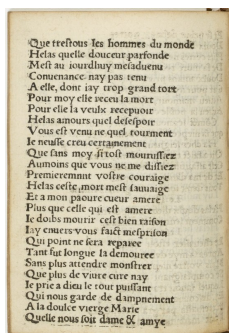 Que trestous les hommes du monde
Helas quelle douceur parfonde
Mest au iourdhuy mesaduenu
Conuenance nay pas tenu
A elle, dont iay trop grand tort
Pour moy elle receu la mort
Pour elle la veulx recepuoir
Helas amours quel desespoir
Vous est venu ne quel tourment
Ie neusse creu certainement
Que sans moy si tost mourussiez
Aumoins que vous ne me dissiez
Premieremnnt vostre couraige
Helas ceste mort mest sauuaige
Et a mon paoure cueur amere
Plus que celle qui est amere
Ie doibs mourir cest bien raison
Iay enuers vous faict mesprison
Qui point ne sera reparee
Tant fut longue la demouree
Sans plus attendre monstrer
Que plus de viure cure nay
Ie prie a dieu le tout puissant
Qui nous garde de dampnement
A la doulce vierge Marie
Quelle nous soit dame & amye